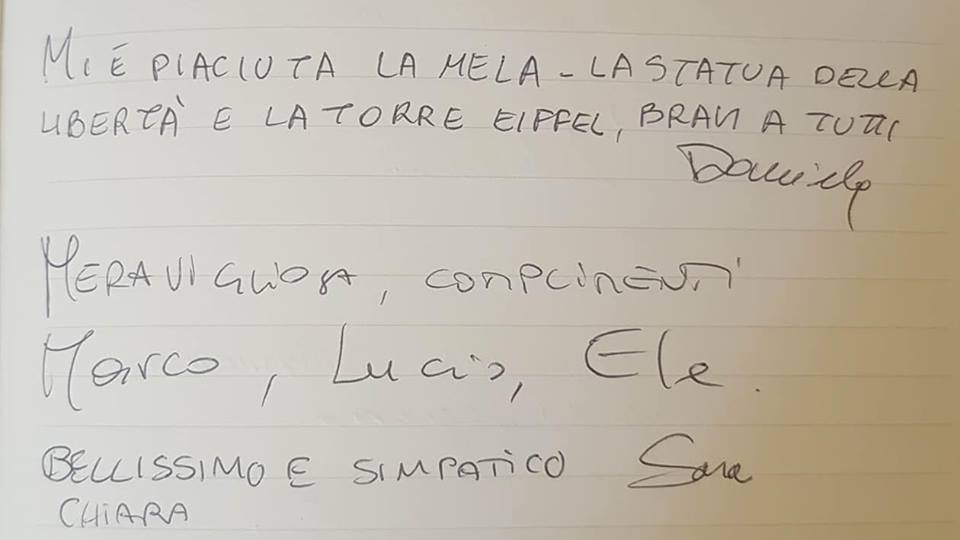 MI È PIACIUTA LA MELA - LA STATUA DELLA
LIBERTÀ E LA TORRE EIFFEL, BRAVI A TUTTI
Daniela
MERAVIGLIOSA, COMPLIMENTI
Marco, Lucio, Ele.
BELLISSIMO E SIMPATICO Sara
CHIARA